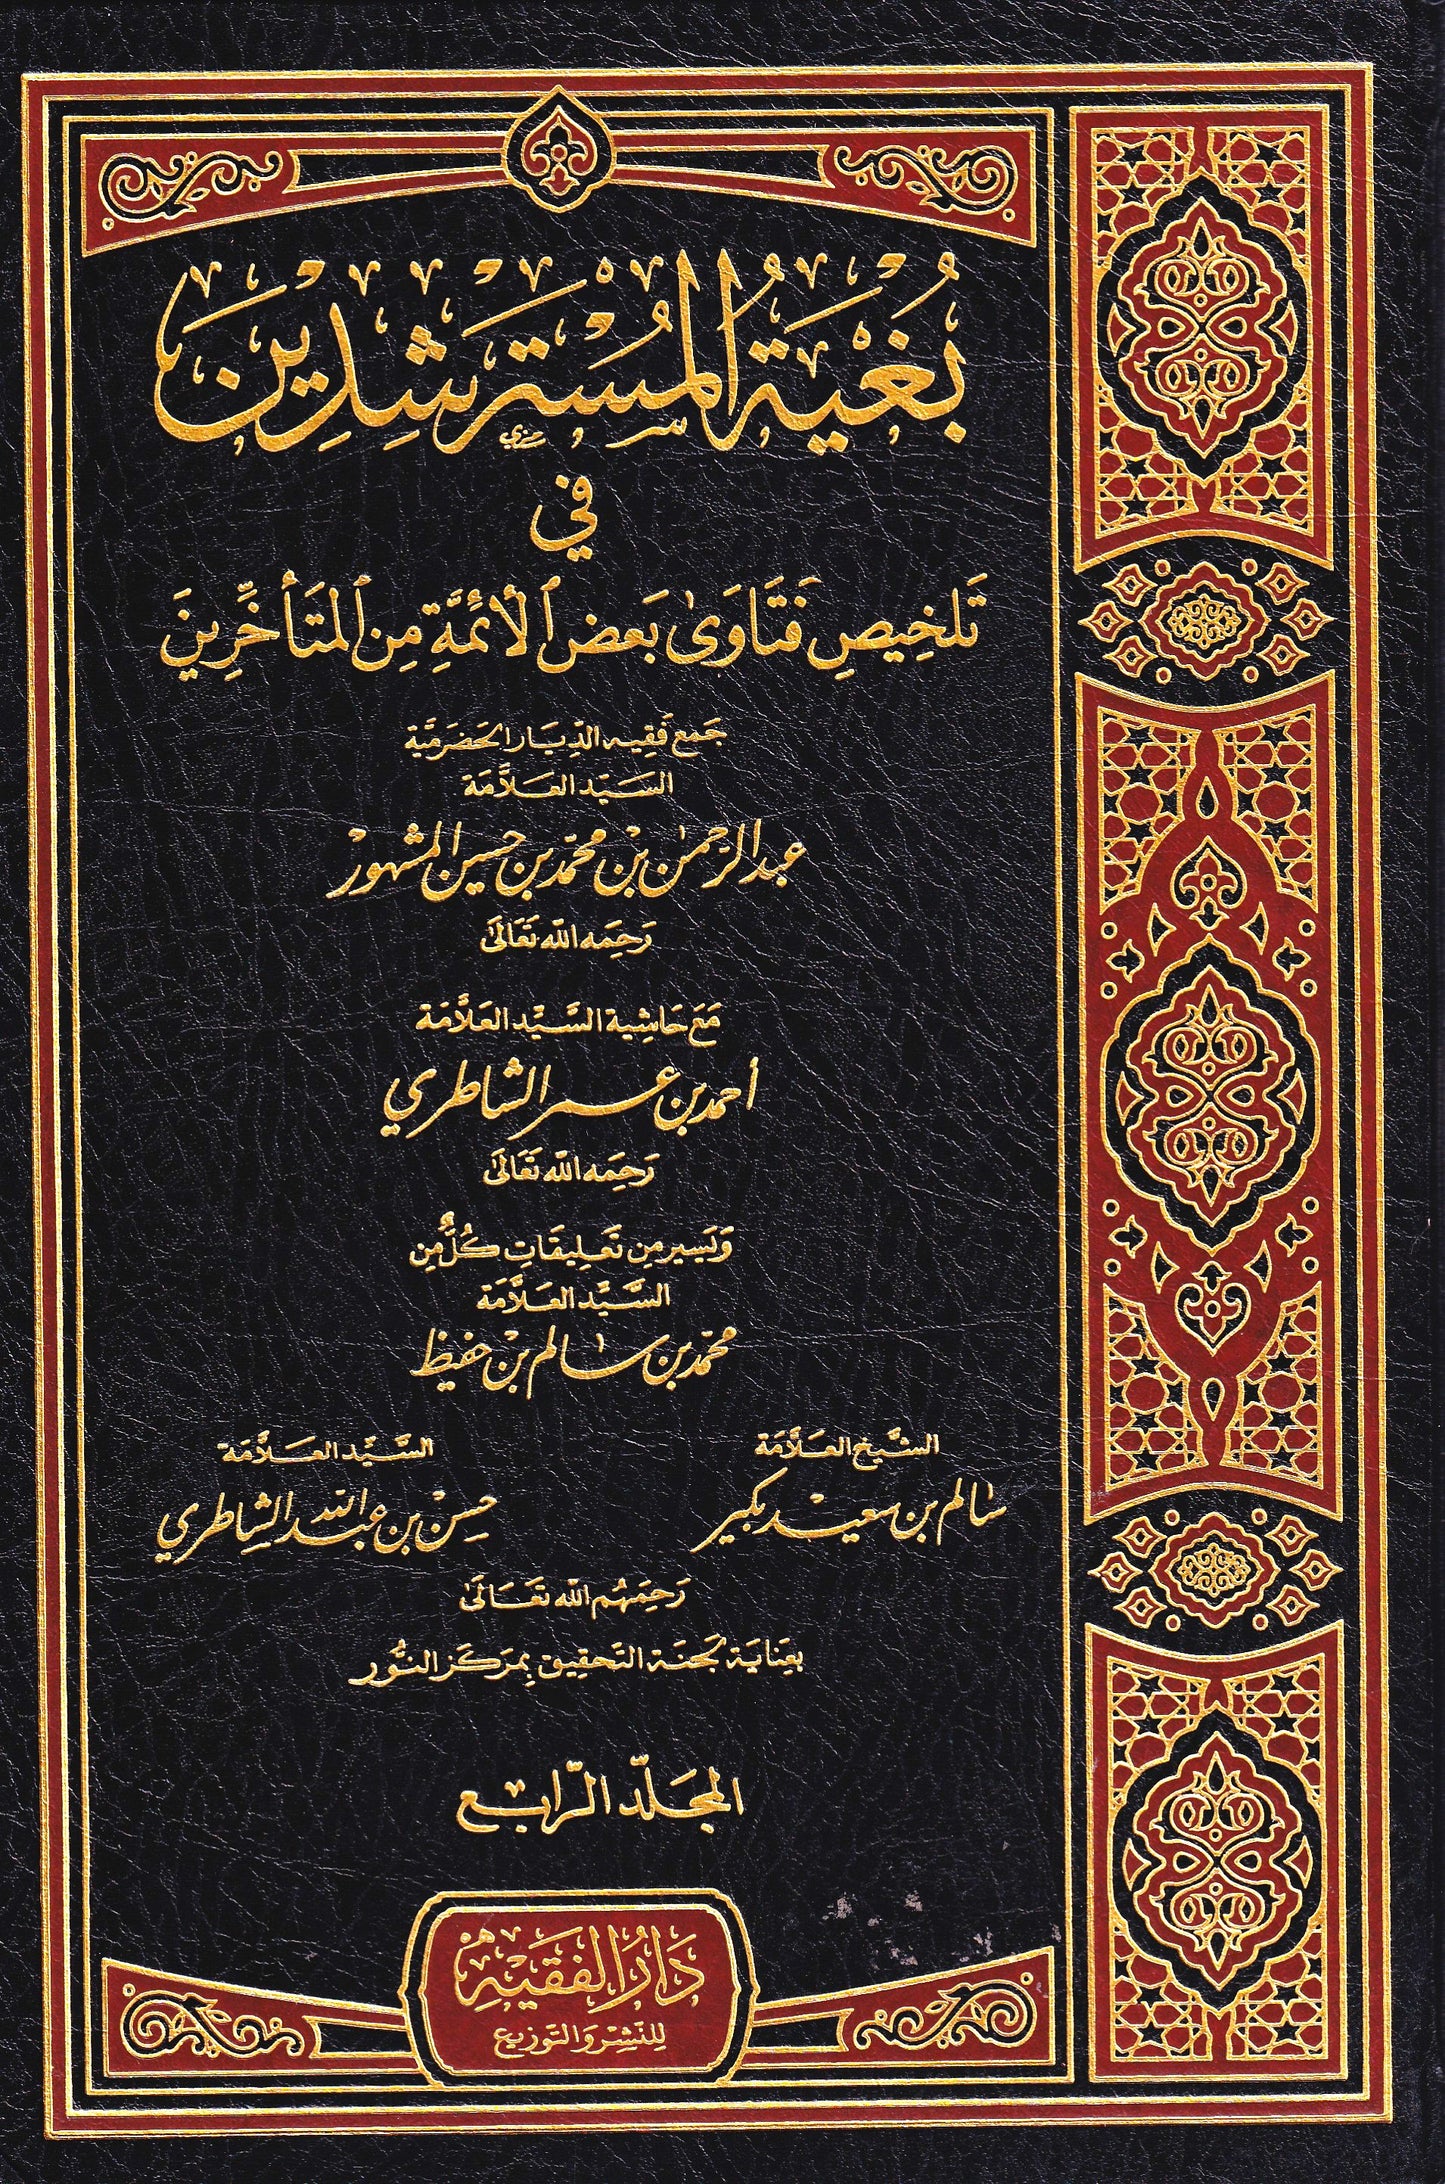 بُغْيَةُ المُسْتَرْشِدِينَ
في
تَلخِيصِ فَتَاوَىٰ بَعضِ ٱلأَئِمَّةِ مِنَ ٱلمُتَأَخِّرِينَ
جَمع فَقِيه الدِّيَار الحَضرَميَّة
السَيِّد العَلاَّمَة
عبد الرحمن بن محمد بن حسين المشهور
رَحِمَه الله تَعَالَىٰ
مَعَ حَاشِية السَّيِّد العَلاَّمَة
أحمد بن عمر الشاطري
رَحِمَه الله تَعَالَىٰ
وَيَسير مِن تَعليقَاتِ كُلٍّ مِن
السَّيِّد العَلاَّمَة
محمد بن سالم بن حفيظ
الشَّيخ العَلاَّمَة
السَّيِّد العَلاَّمَة
سالم بن سعيد بكير
حسن بن عبد الله الشاطري
رَحِمَهُم الله تَعَالَىٰ
بِعِنَاية لَجنَة التَّحقيق بِمَركَز النُّور
المجَلّد الرّابع
دَارُ الفَقِيهِ
لِلنَشْر وَالتَوزيع